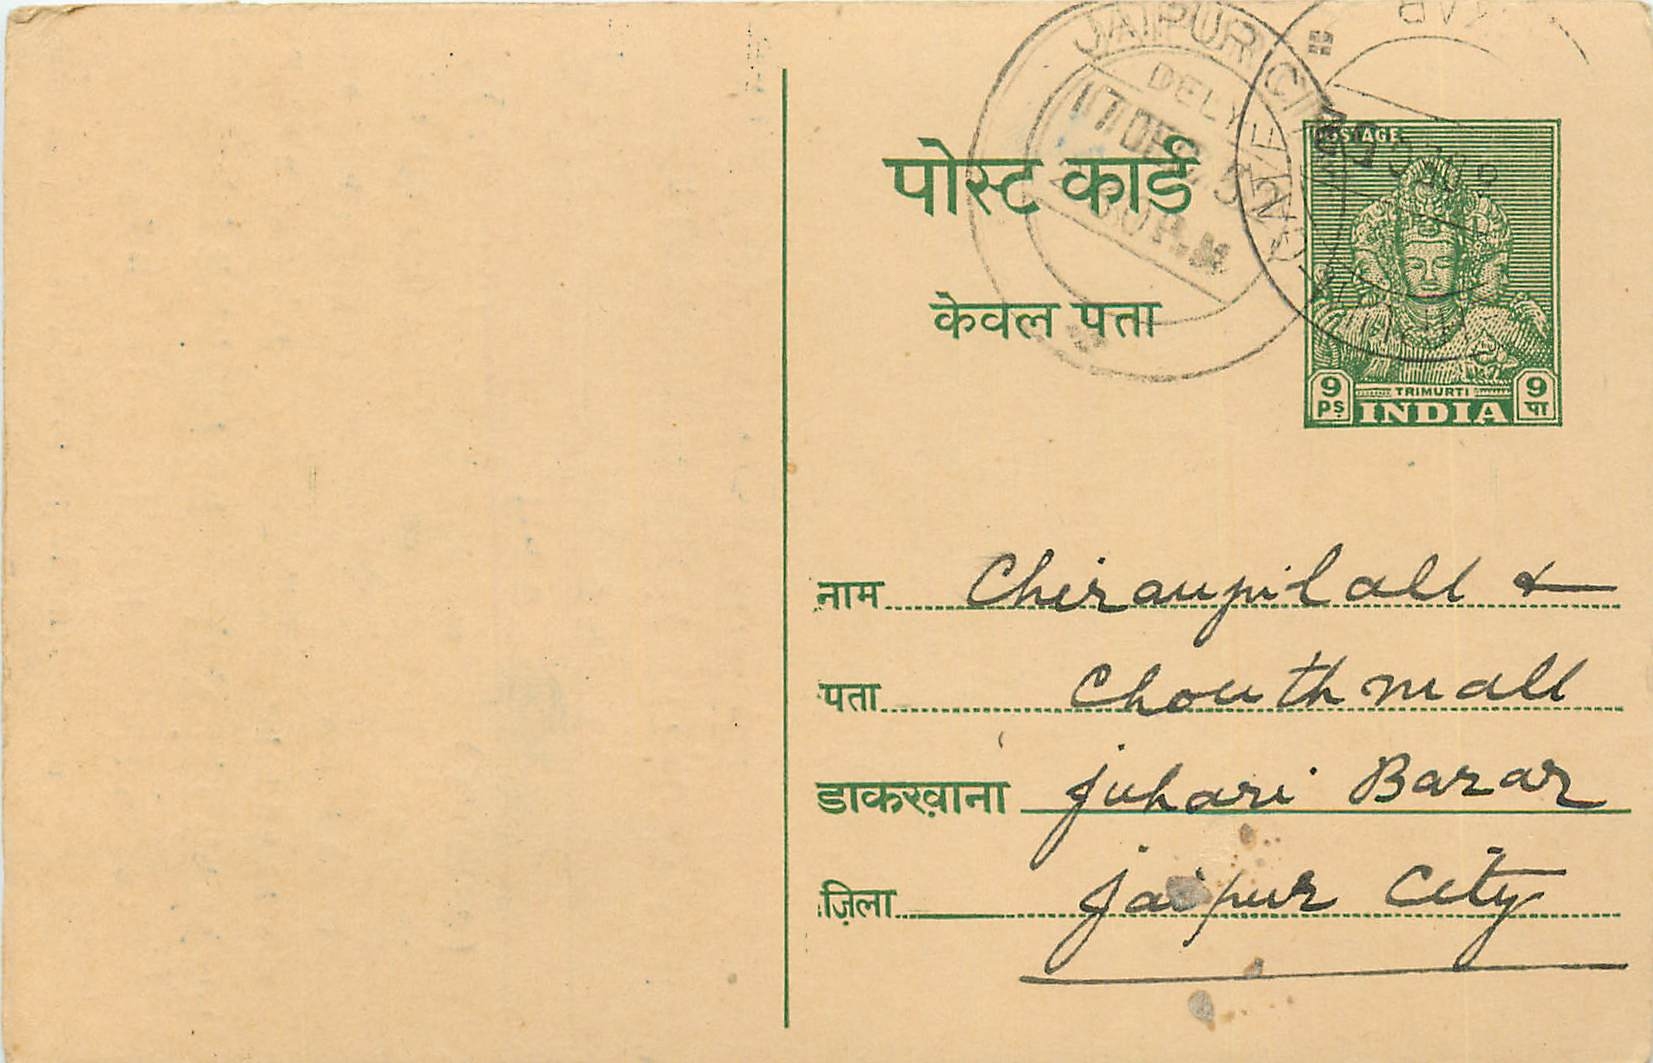 JAIPUR CITY
DELY
17 DEC 52
2 30 P.M
POSTAGE
पोस्ट कार्ड
केवल पता
9 PS TRIMURTI 9 पा
INDIA
नाम Chiraunjilall &
पता Chouthmall
डाकख़ाना Juhari Bazar
ज़िला Jaipur City